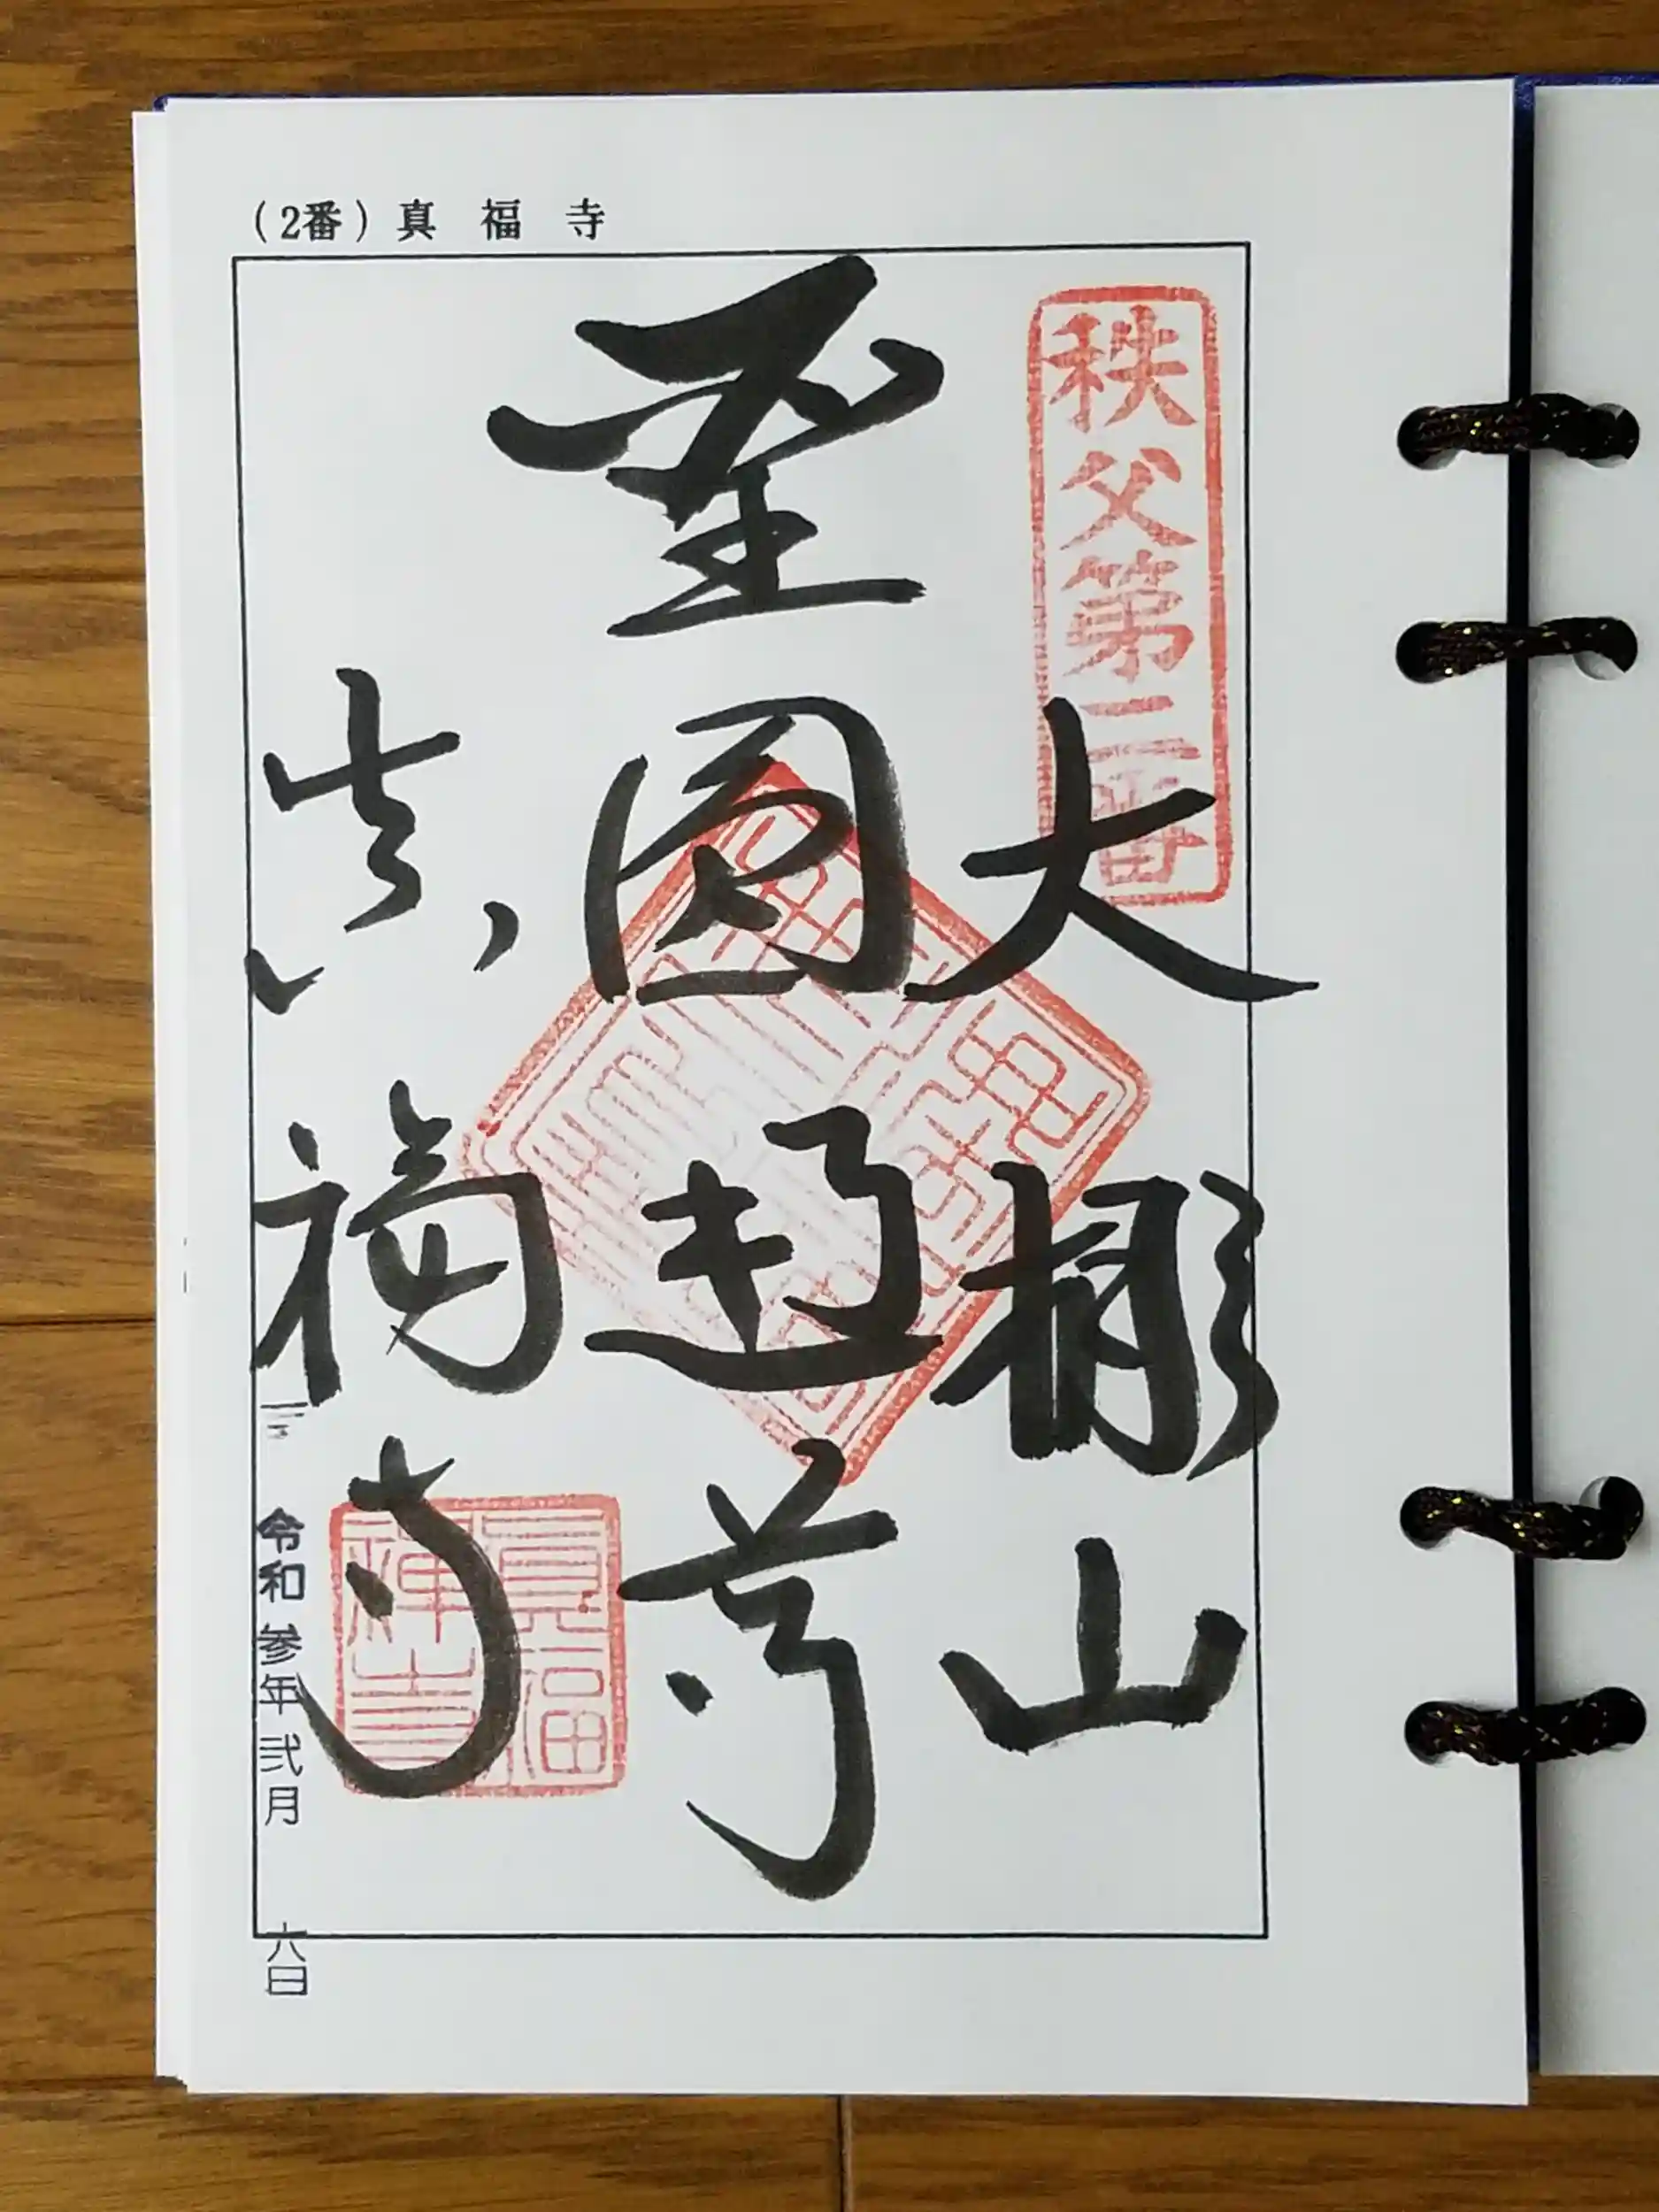 (2番) 真福寺
秩父第二番
大棚山
聖圓通尊
真福寺
令和参年弐月 六日